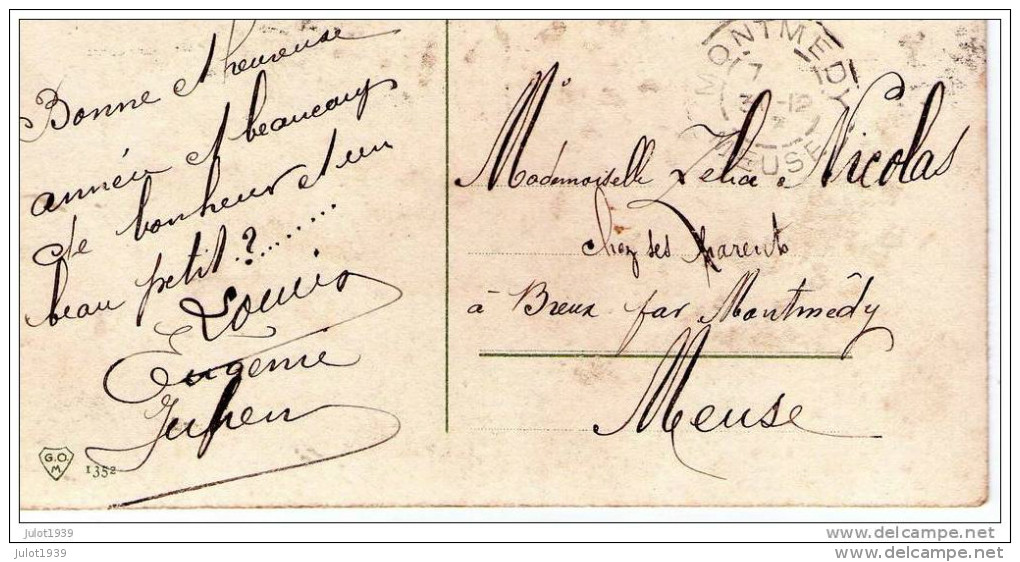 Bonne et heureuse
année et beaucoup
de bonheur et un
beau petit ?.........
Louis
Eugenie
Julien
G.O.
M
1352
MONTMEDY
-12
MEUSE
Mademoiselle Zelia Nicolas
chez ses parents
à Breux par Montmédy
Meuse
julot1939
julot1939
www.delcampe.net
www.delcampe.net